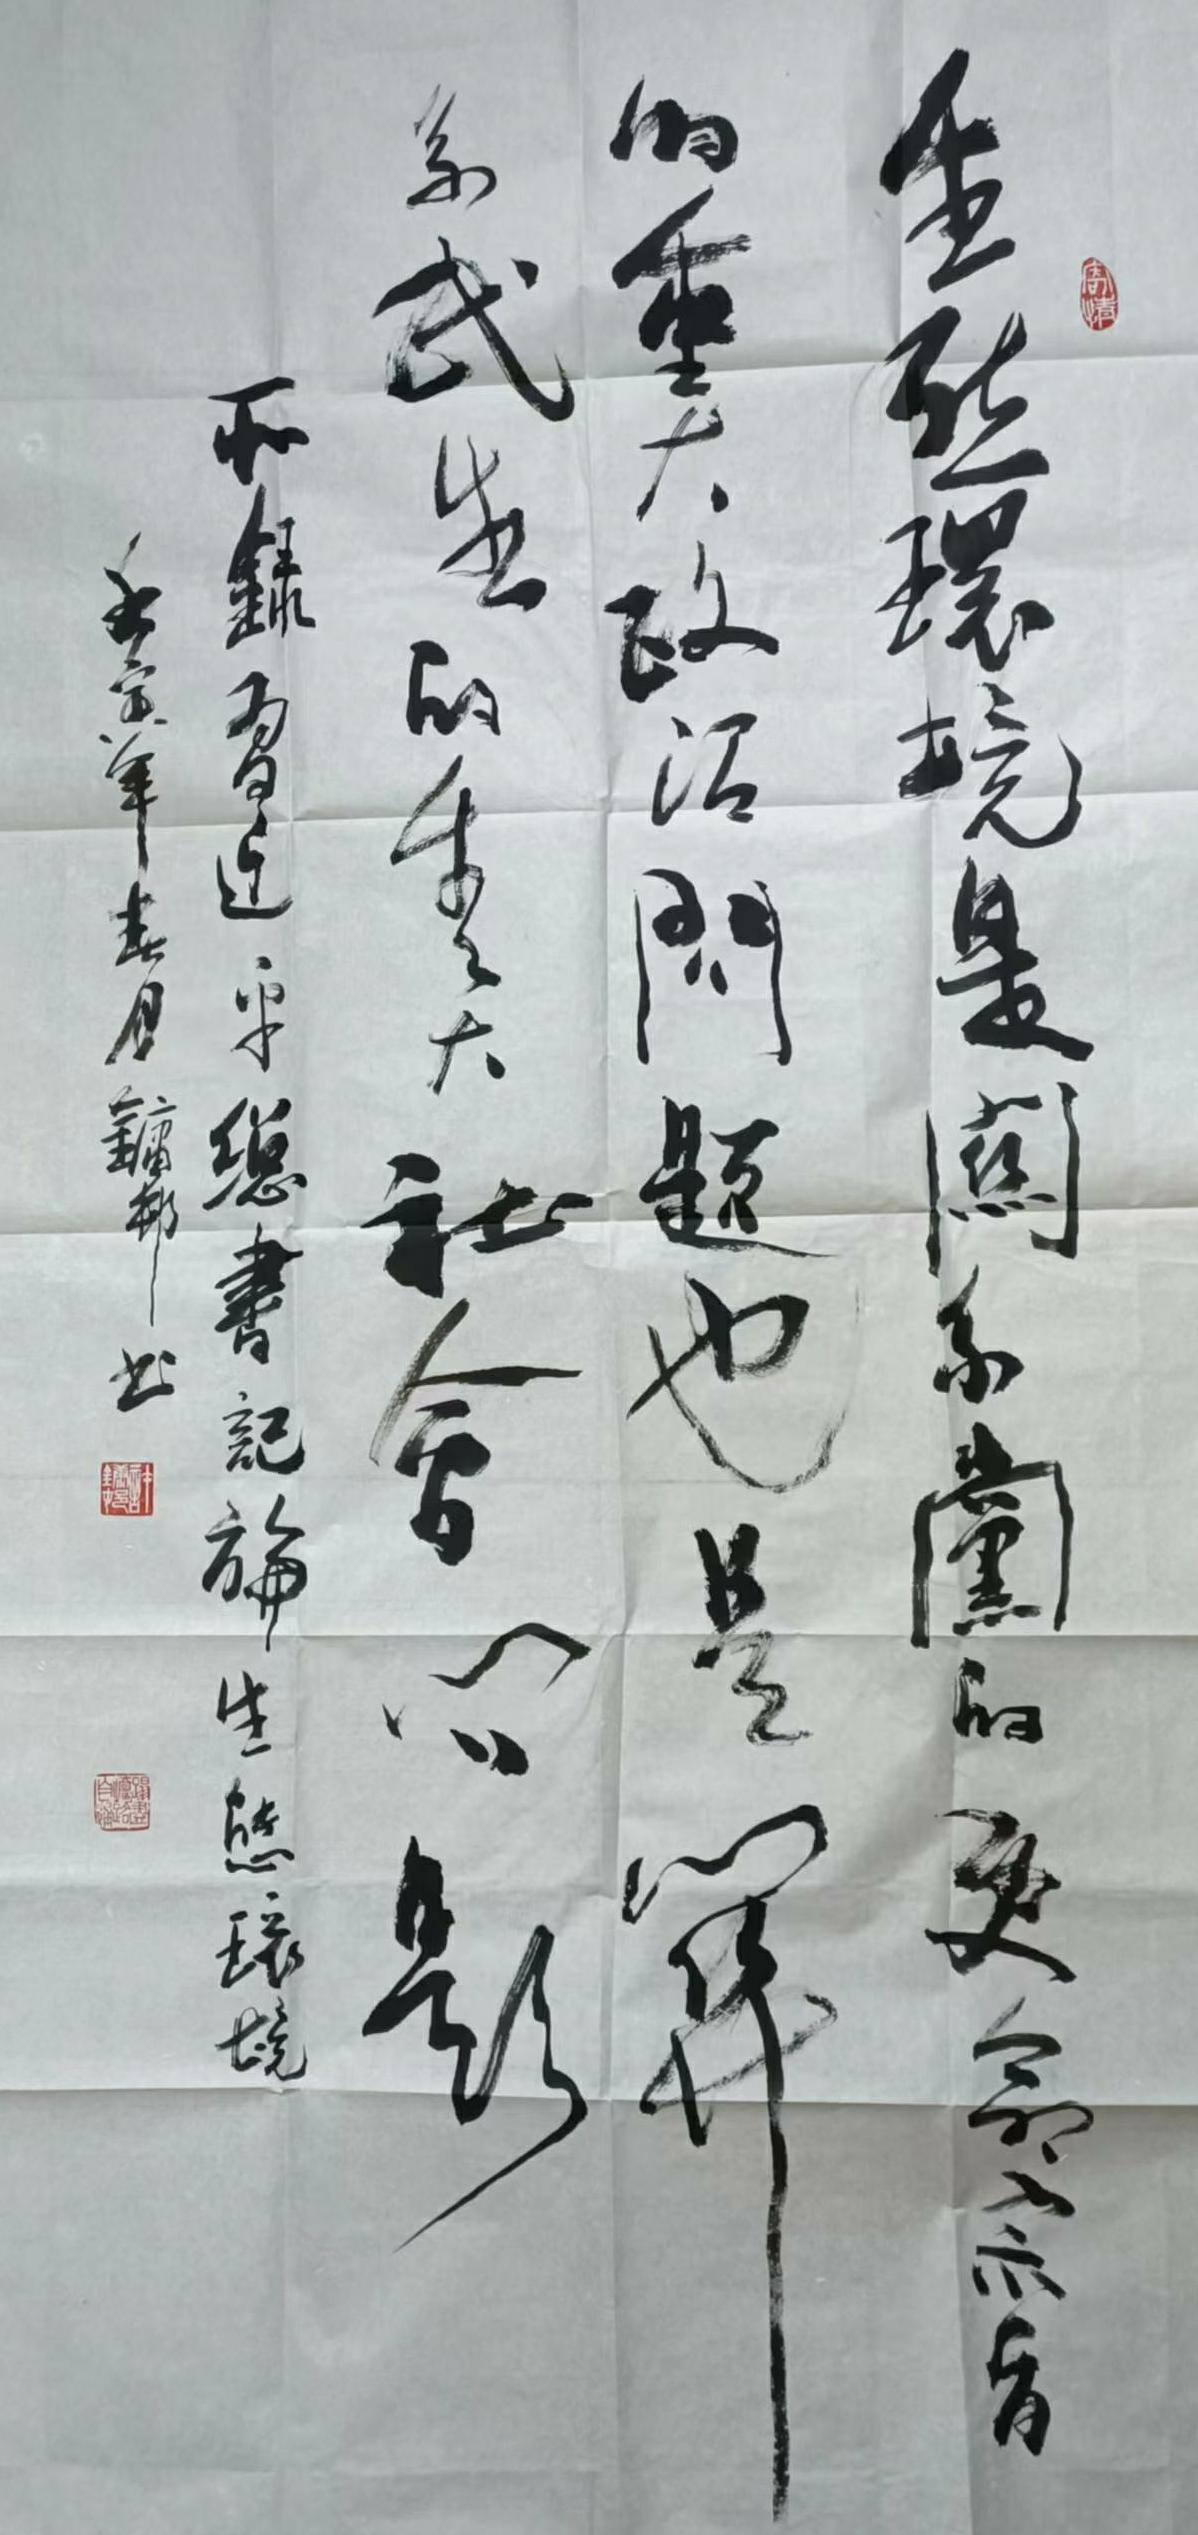 生態環境是關系黨的使命宗旨
的重大政治問題也是關
系民生的重大社會問題
所錄習近平總書記論生態環境
壬寅年春月鏞邨书
寄情